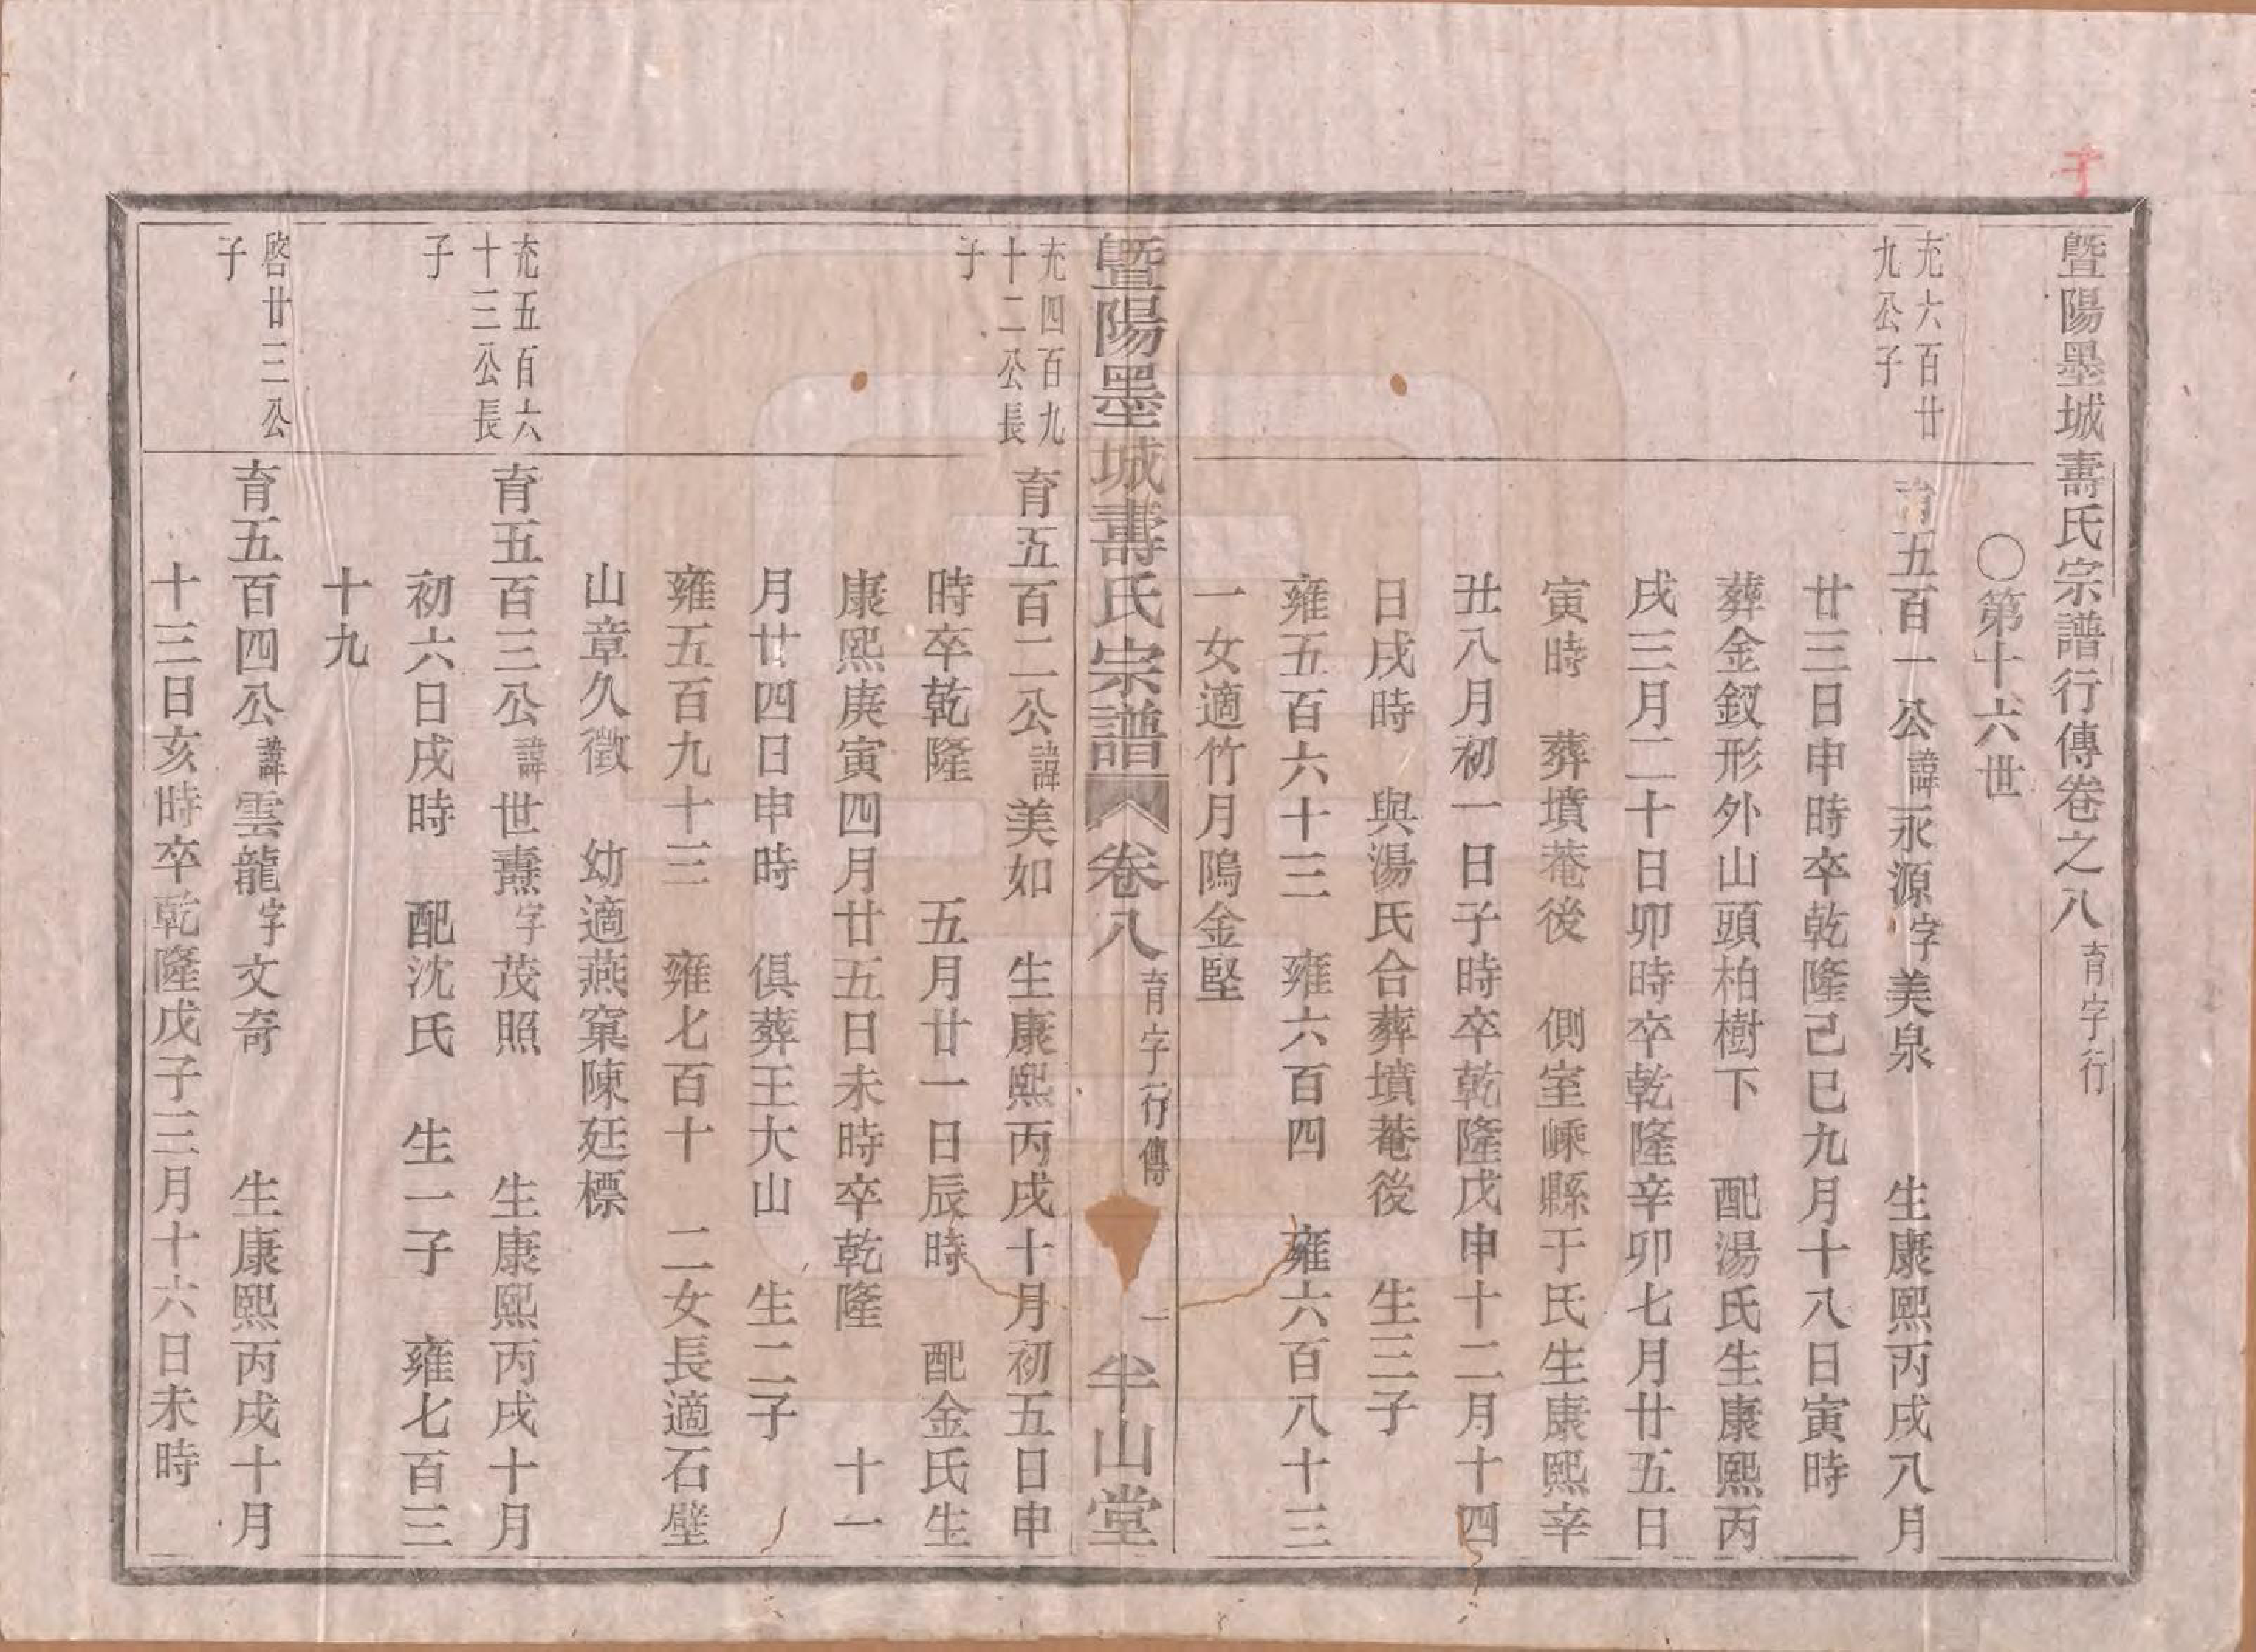 子
暨陽墨城壽氏宗譜行傳卷之八 育字行
〇第十六世
充六百廿
九公子
育五百一公諱永源字美泉 生康熙丙戌八月
廿三日申時卒乾隆己巳九月十八日寅時
葬金釵形外山頭柏樹下 配湯氏生康熙丙
戌三月二十日卯時卒乾隆辛卯七月廿五日
寅時 葬墳菴後 側室嵊縣于氏生康熙辛
丑八月初一日子時卒乾隆戊申十二月十四
日戌時 與湯氏合葬墳菴後 生三子
雍五百六十三 雍六百四 雍六百八十三
一女適竹月鴿金堅
暨陽墨城壽氏宗譜 卷八 育字行傳 一 半山堂
充四百九
十二公長
子
育五百二公諱美如 生康熙丙戌十月初五日申
時卒乾隆 五月廿一日辰時 配金氏生
康熙庚寅四月廿五日未時卒乾隆 十一
月廿四日申時 俱葬王大山 生二子
雍五百九十三 雍七百十 二女長適石壁
山章久徵 幼適燕窠陳廷標
充五百六
十三公長
子
育五百三公諱世燾字茂照 生康熙丙戌十月
初六日戌時 配沈氏 生一子 雍七百三
十九
啓廿三公
子
育五百四公諱雲龍字文奇 生康熙丙戌十月
十三日亥時卒乾隆戊子三月十六日未時